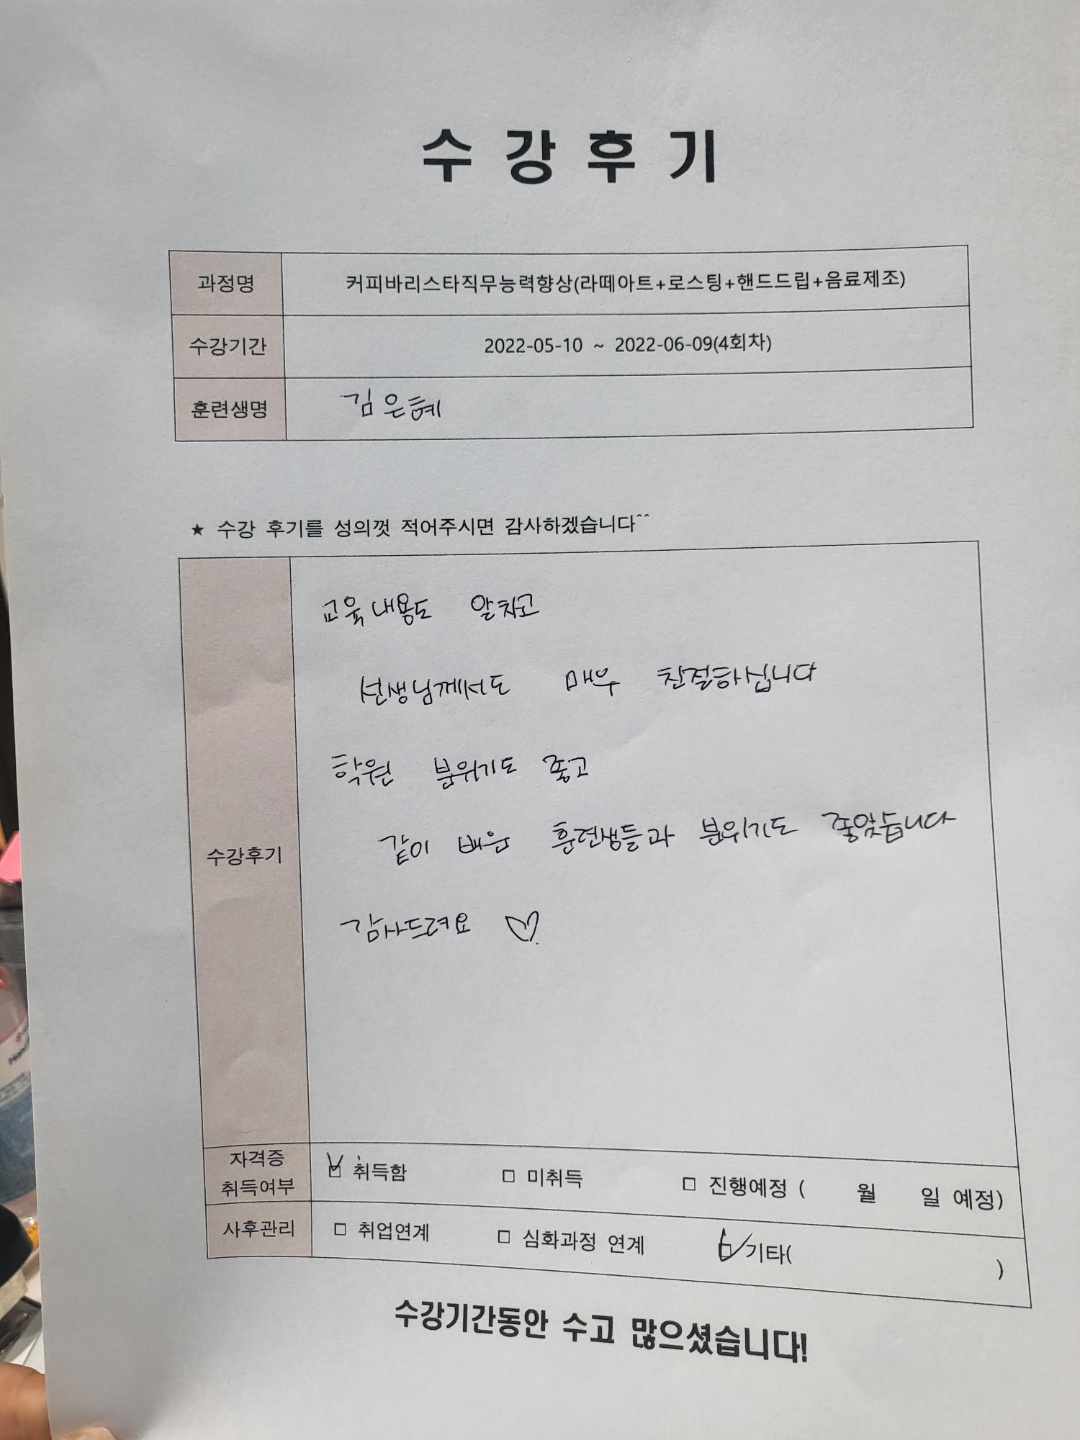 수강후기
과정명 커피바리스타직무능력향상(라떼아트+로스팅+핸드드립+음료제조)
수강기간 2022-05-10 ~ 2022-06-09(4회차)
훈련생명 김은혜
★ 수강 후기를 성의껏 적어주시면 감사하겠습니다^^
교육내용도 알차고
선생님께서도 매우 친절하십니다
학원 분위기도 좋고
같이 배운 훈련생들과 분위기도 좋았습니다
수강후기
감사드려요 ♡
자격증 취득여부 ☑ 취득함 □ 미취득 □ 진행예정 ( 월 일 예정)
사후관리 □ 취업연계 □ 심화과정 연계 ☑ 기타( )
수강기간동안 수고 많으셨습니다!